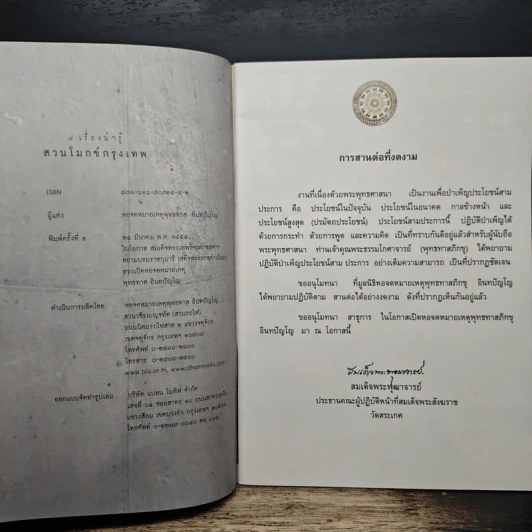 ๘ เรื่องน่ารู้
สวนโมกข์กรุงเทพ
ISBN
ผู้แต่ง หอจดหมายเหตุพุทธทาส อินทปัญโญ
พิมพ์ครั้งที่ ๑
ในโอกาส สมเด็จพระเทพรัตนราชสุดาฯ
สยามบรมราชกุมารี เสด็จพระราชดำเนิน
ทรงเปิดหอจดหมายเหตุ
พุทธทาส อินทปัญโญ
ดำเนินการผลิตโดย หอจดหมายเหตุพุทธทาส อินทปัญโญ
สวนวชิรเบญจทัศ (สวนรถไฟ)
ถนนนิคมรถไฟสาย ๒ แขวงจตุจักร
เขตจตุจักร กรุงเทพ ๑๐๙๐๐
โทรศัพท์
โทรสาร
www.bia.or.th, www.dhammada.com
ออกแบบจัดทำรูปเล่ม บริษัท แปลน โมทิฟ จำกัด
โทรศัพท์
การสานต่อที่งดงาม
งานที่เนื่องด้วยพระพุทธศาสนา เป็นงานเพื่อบำเพ็ญประโยชน์สาม
ประการ คือ ประโยชน์ในปัจจุบัน ประโยชน์ในอนาคต กาลข้างหน้า และ
ประโยชน์สูงสุด (ปรมัตถประโยชน์) ประโยชน์สามประการนี้ ปฏิบัติบำเพ็ญได้
ด้วยการกระทำ ด้วยการพูด และความคิด เป็นที่ทราบกันดีอยู่แล้วสำหรับผู้นับถือ
พระพุทธศาสนา ท่านเจ้าคุณพระธรรมโกศาจารย์ (พุทธทาสภิกขุ) ได้พยายาม
ปฏิบัติบำเพ็ญประโยชน์สาม ประการ อย่างเต็มความสามารถ เป็นที่ปรากฏชัดเจน
ขออนุโมทนา ที่มูลนิธิหอจดหมายเหตุพุทธทาสภิกขุ อินทปัญโญ
ได้พยายามปฏิบัติตาม สานต่อได้อย่างงดงาม ดังที่ปรากฏเห็นกันอยู่แล้ว
ขออนุโมทนา สาธุการ ในโอกาสเปิดหอจดหมายเหตุพุทธทาสภิกขุ
อินทปัญโญ มา ณ โอกาสนี้
สมเด็จพระพุฒาจารย์
สมเด็จพระพุฒาจารย์
ประธานคณะผู้ปฏิบัติหน้าที่สมเด็จพระสังฆราช
วัดสระเกศ